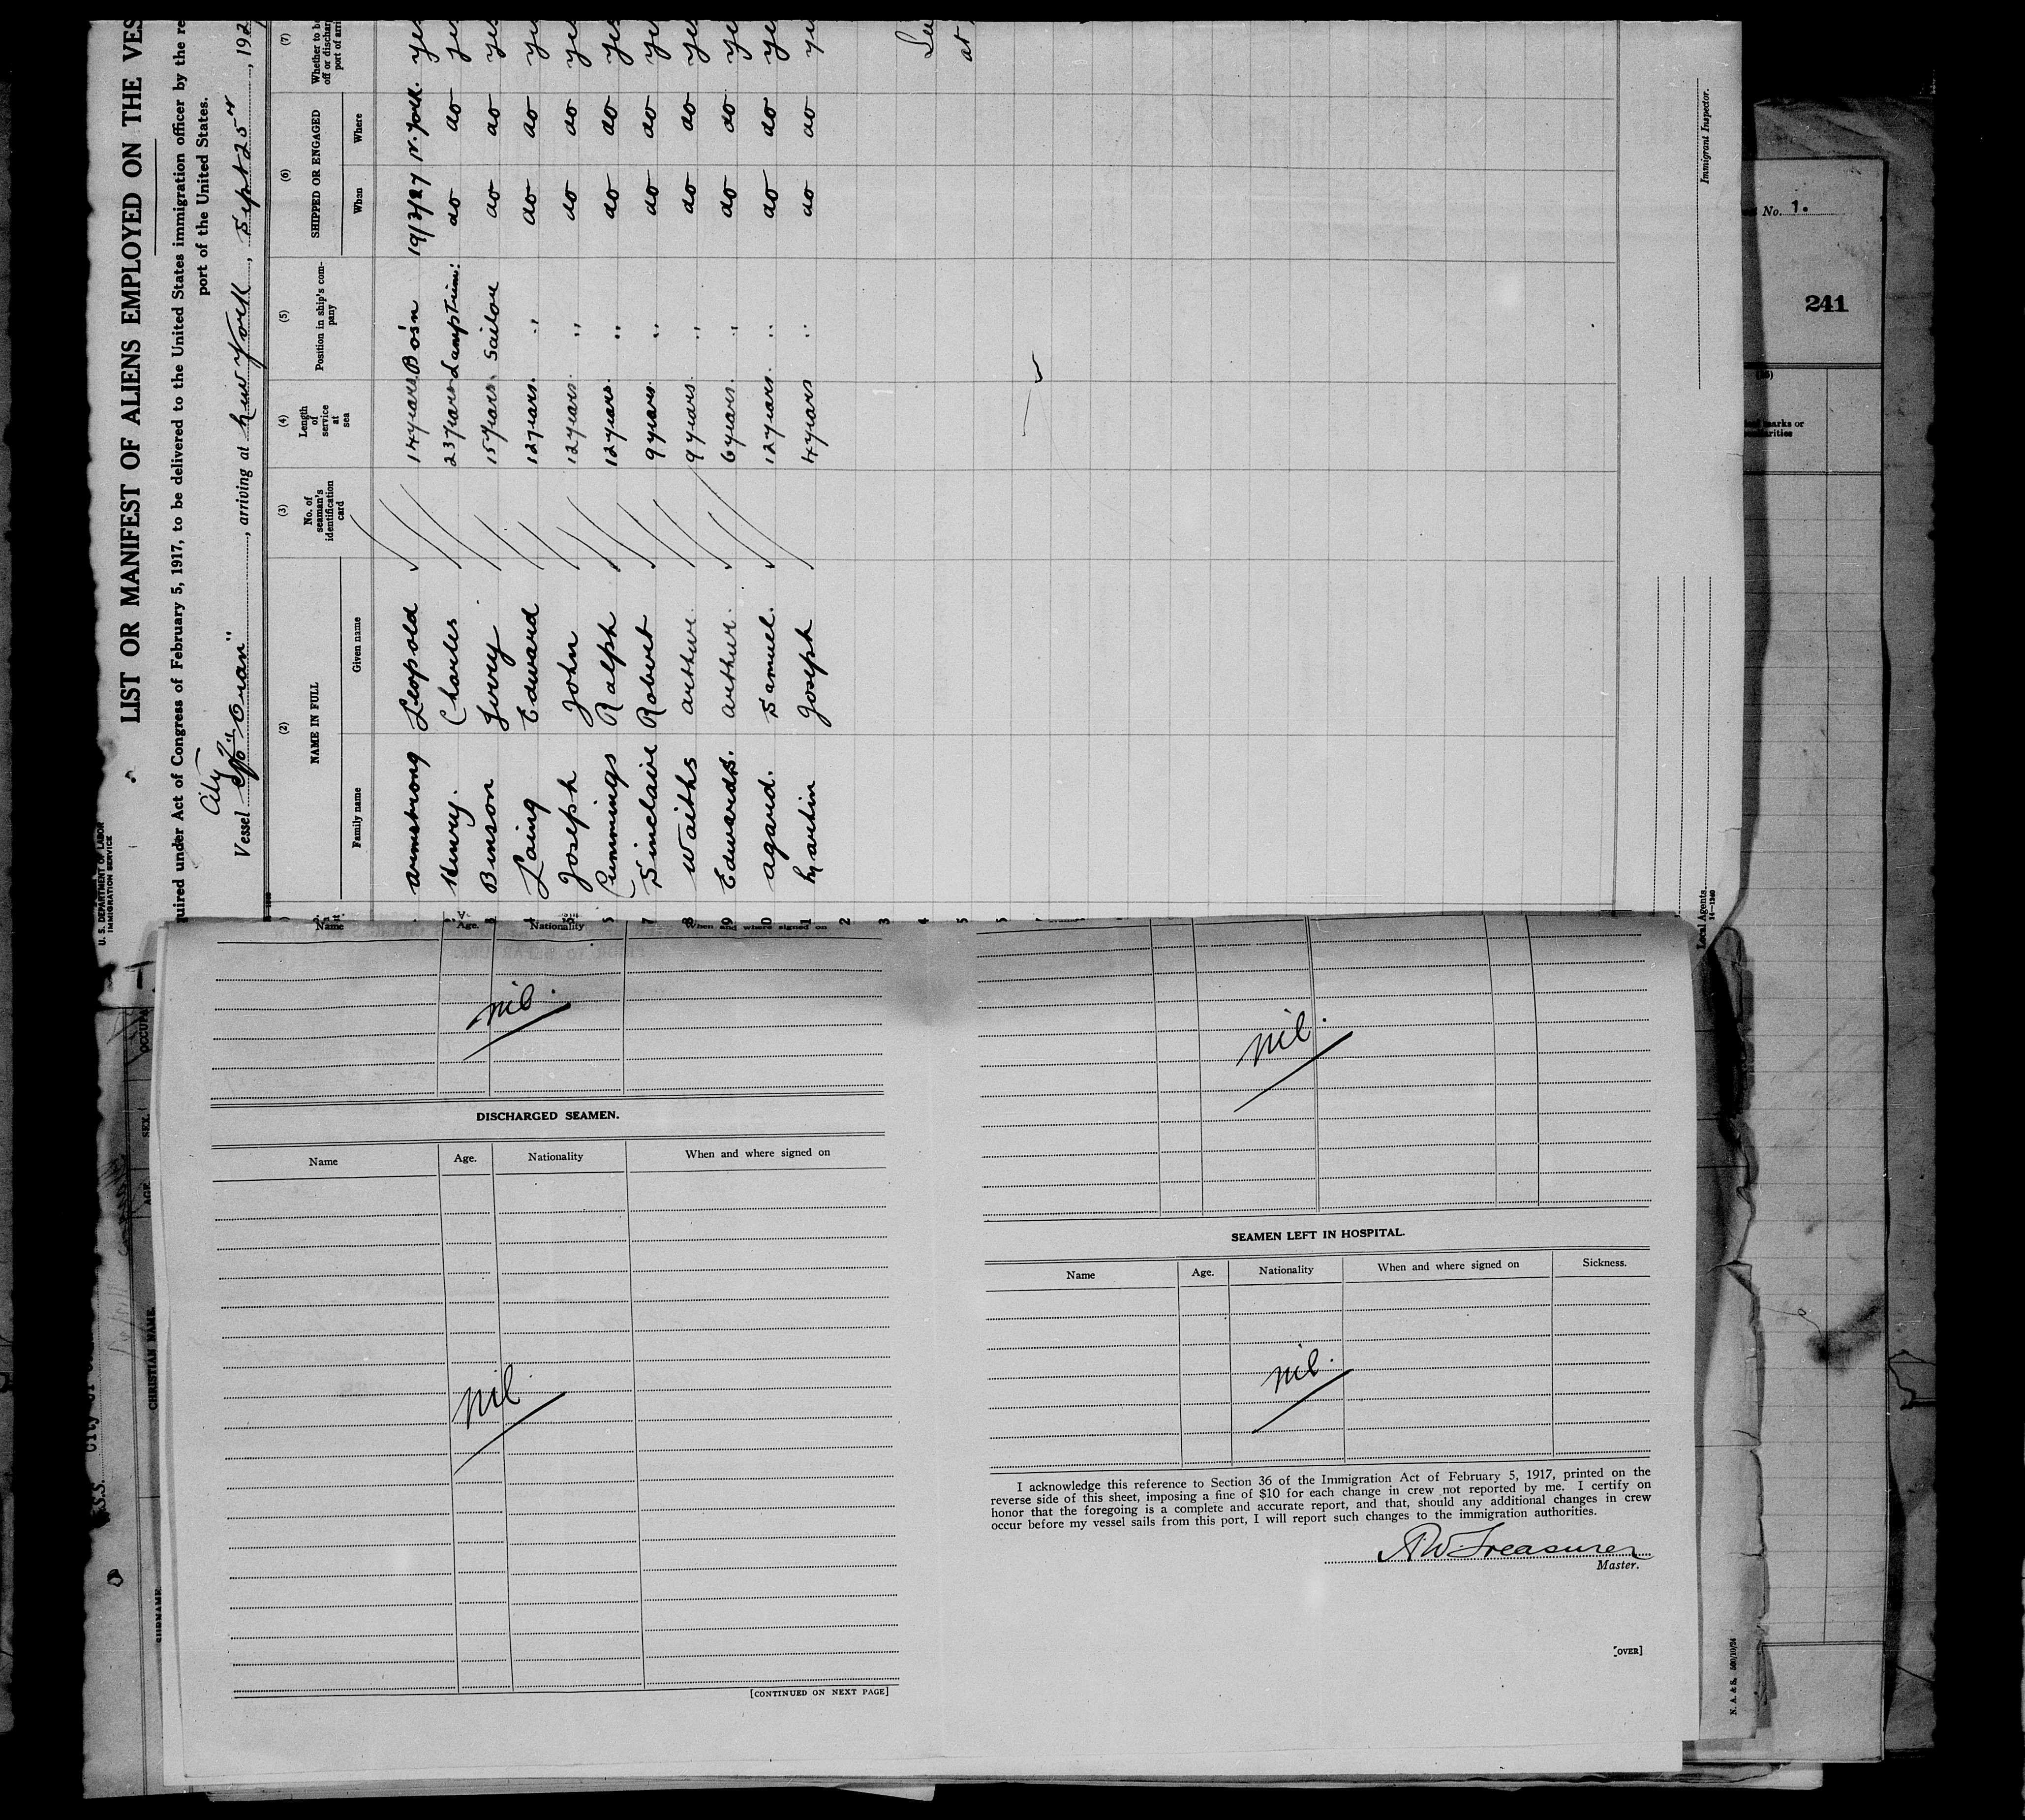 U. S. DEPARTMENT OF LABOR
IMMIGRATION SERVICE
LIST OR MANIFEST OF ALIENS EMPLOYED ON THE VES
quired under Act of Congress of February 5, 1917, to be delivered to the United States immigration officer by the re
port of the United States.
City
Vessel of "Oran", arriving at New York, Sept 25th, 192
(2) (3) (4) (5) (6) (7)
NAME IN FULL
Family name Given name
No. of seaman's identification card
Length of service at sea
Position in ship's company
SHIPPED OR ENGAGED
When Where
Whether to be
off or discharg
port of arri
Armstrong Leopold 14 years Bosn 19/3/27 N. York. yes
2 Henry. Charles 23 years Lamptrim: do do yes
3 Benson Jerry 15 years Sailor do do yes
4 Laing Edward 12 years. " do do yes
5 Joseph John 12 years. " do do yes
Cummings Ralph 12 years. " do do yes
7 Sinclaire Robert 9 years. " do do yes
8 Waiths Arthur 9 years. " do do yes
9 Edwards. Arthur. 6 years. " do do yes
0 Agard. Samuel. 12 years. " do do yes
1 Martin Joseph 4 years " do do ye
2
3
4
5
at
Immigrant Inspector.
Local Agents
14—1240
No. 1.
241
marks or
Name Age. Nationality When and where signed on
nil.
DISCHARGED SEAMEN.
Name Age. Nationality When and where signed on
nil.
[CONTINUED ON NEXT PAGE]
nil.
SEAMEN LEFT IN HOSPITAL.
Name Age. Nationality When and where signed on Sickness.
nil.
I acknowledge this reference to Section 36 of the Immigration Act of February 5, 1917, printed on the
reverse side of this sheet, imposing a fine of $10 for each change in crew not reported by me. I certify on
honor that the foregoing is a complete and accurate report, and that, should any additional changes in crew
occur before my vessel sails from this port, I will report such changes to the immigration authorities.
A W Treasurer
Master.
[OVER]
N. A. & S. 500/10/24
S.S.
SURNAME
CHRISTIAN NAME.
AGE
SEX.
OCCUPA